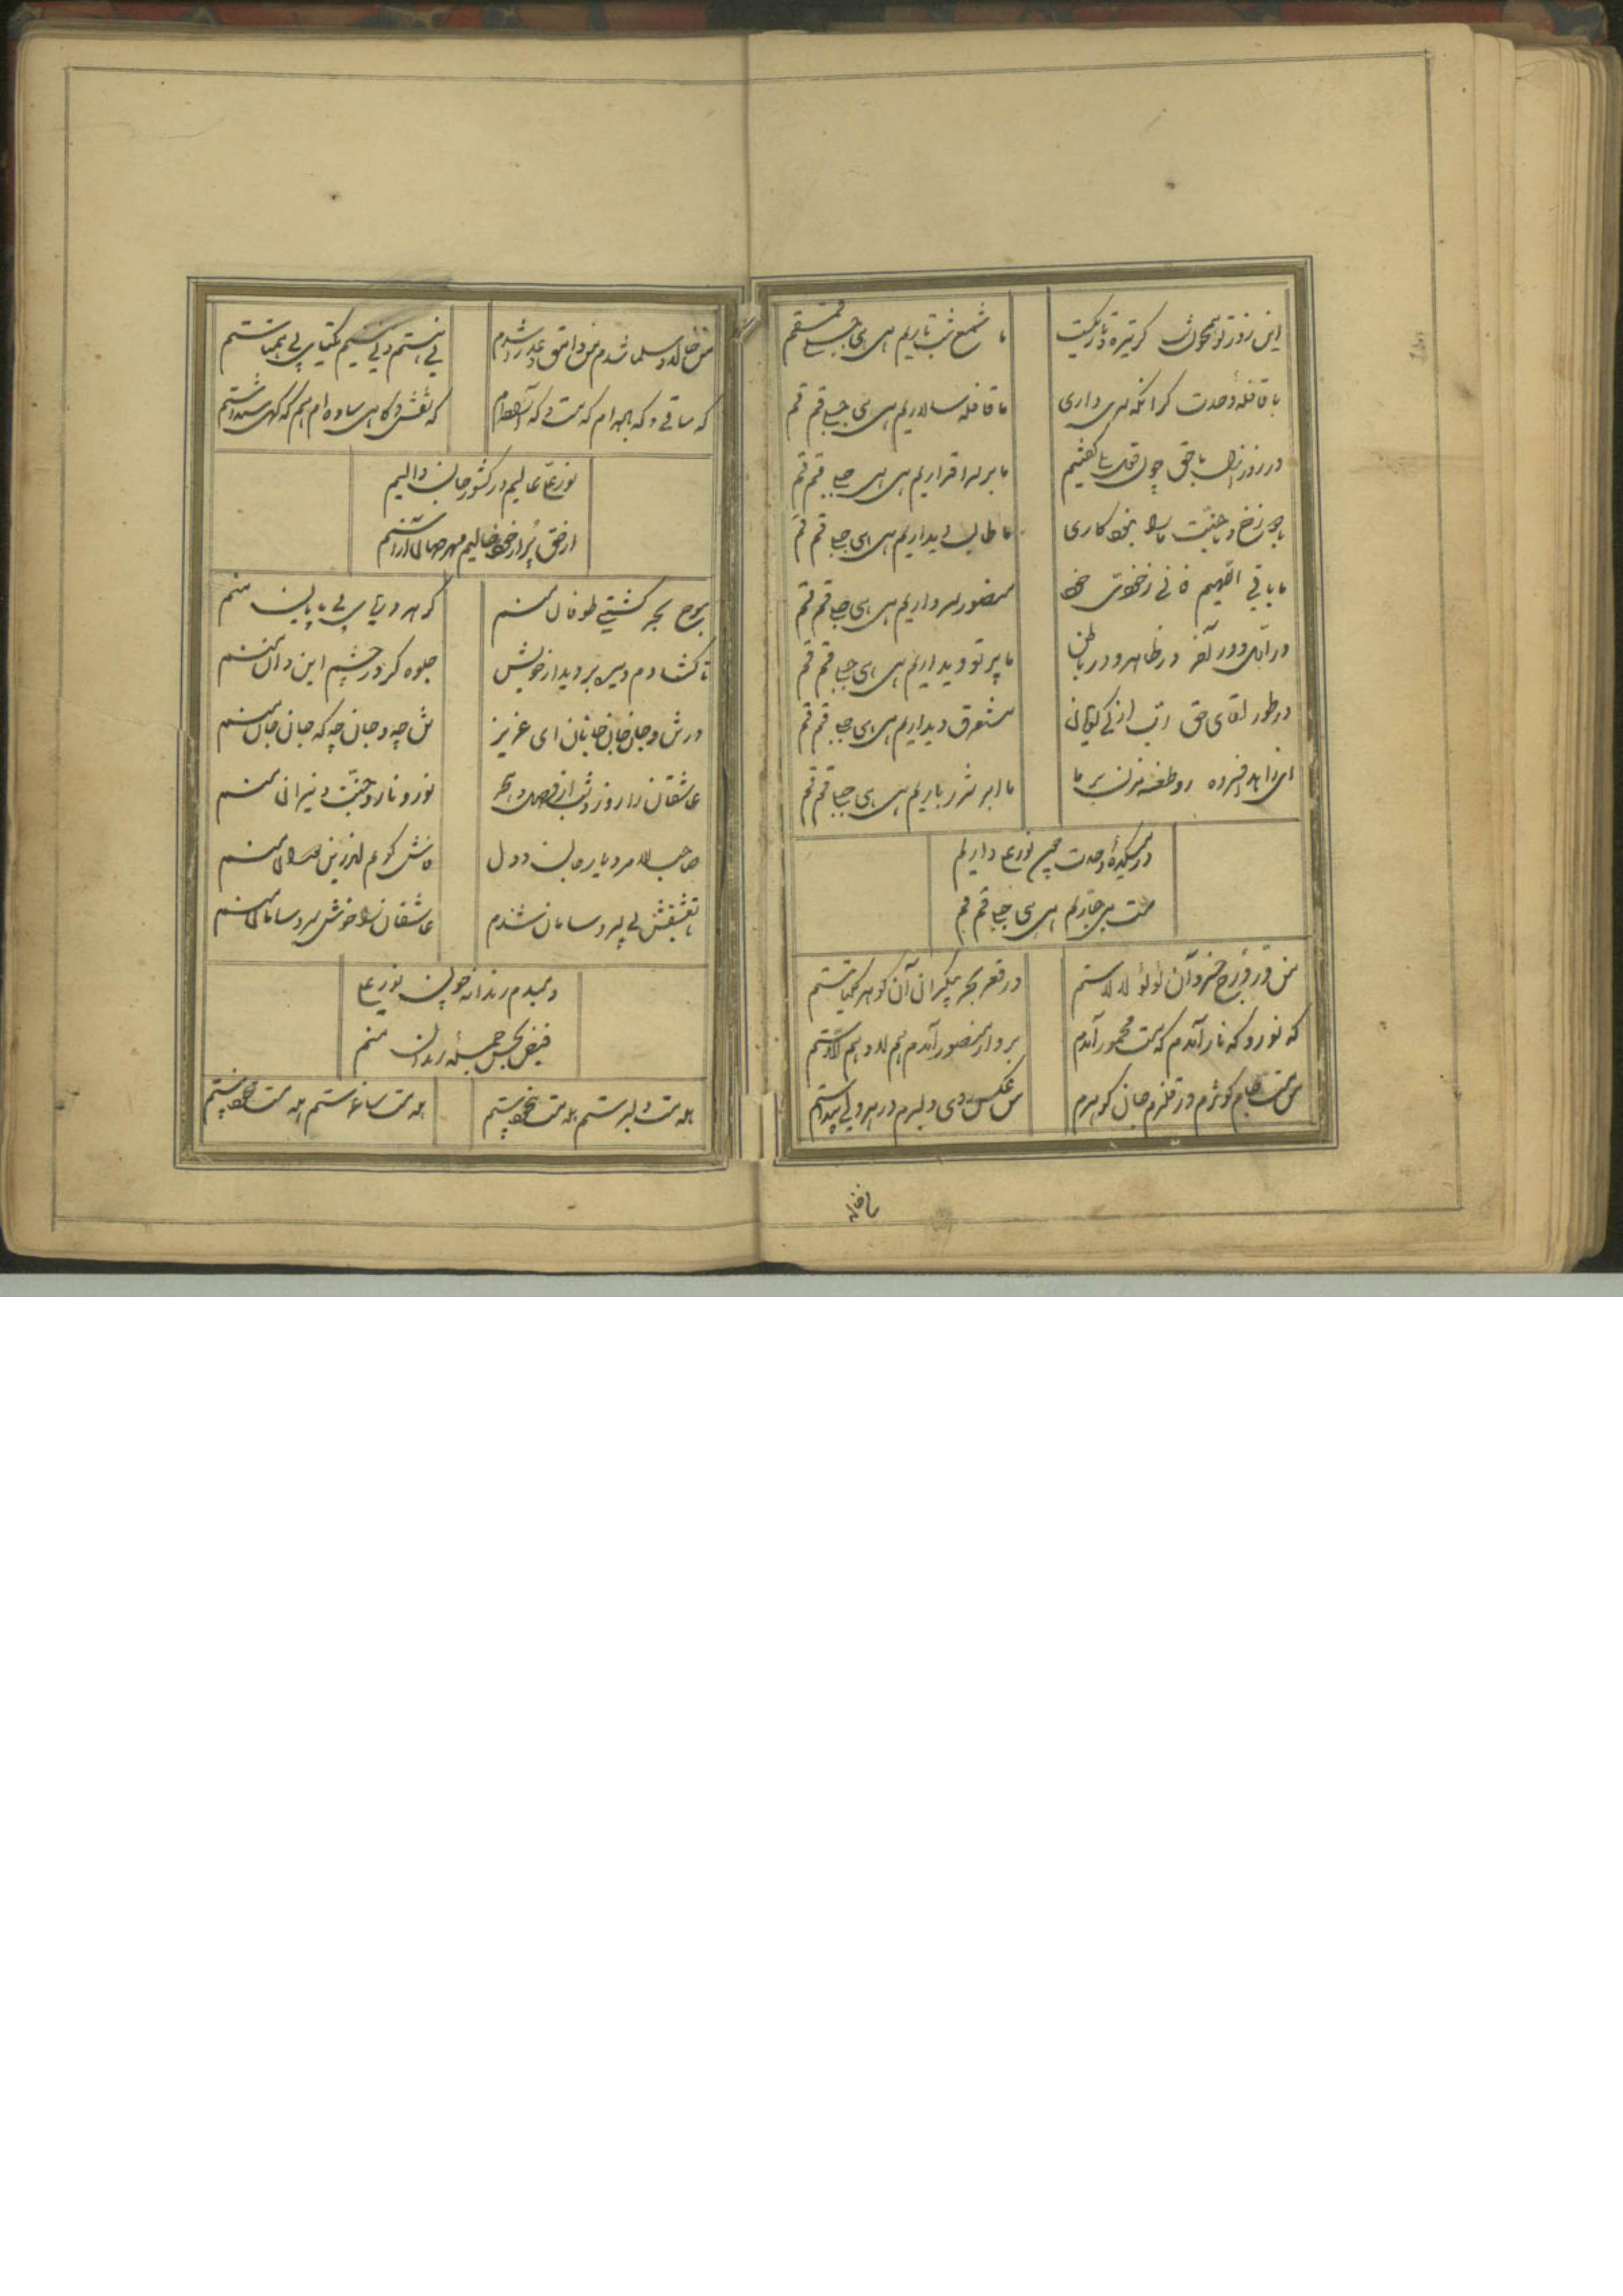 این روز تو همچون شب گر تیره و تاریکست
ما شمع شب تاریم هی هی جبلی قم قم
با قافلهٔ وحدت گر آنکه سری داری
ما قافله سالاریم هی هی جبلی قم قم
در روز ازل با حق چون قول بلی گفتیم
ما بر سر اقراریم هی هی جبلی قم قم
با دوزخ و با جنت ما را نبود کاری
ما طالب دیداریم هی هی جبلی قم قم
ما باقی اللهیم فانی ز خودی خود
منصور سر داریم هی هی جبلی قم قم
در اول و در آخر در ظاهر و در باطن
ما پرتو دیداریم هی هی جبلی قم قم
در طور لقای حق رب ارنی گویان
مستغرق دیداریم هی هی جبلی قم قم
ای زاهد افسرده رو طعنه مزن بر ما
ما ابر شرر باریم هی هی جبلی قم قم
در میکدهٔ وحدت چون نورعلی داریم
مست می جباریم هی هی جبلی قم قم
من در درج خسرو آن لؤلؤ لالاستم
در قعر بحر بیکران آن گوهر یکتاستم
که نور و که نار آمدم که مست مخمور آمدم
بر دار منصور آمدم هم لا و هم الاستم
من مست جام کوثرم در قلزم جان گوهرم
من عکس روی دلبرم در هر دلی پیداستم
من خالد و سلما شدم من وامق و عذرا شدم
نی هستم و نی نیستم یکتای بی همتاستم
که ساقی و که باده ام که مست و که آماده ام
که نقش و گاهی ساده ام
نورعلی عالیم در کشور جان والیم
از حق پر از خود خالیم مهر جهان آراستم
موج بحر کشتی طوفان منم
گوهر دریای بی پایان منم
تا گشادم دیده بر دیدار خویش
جلوه گر در چشم این و آن منم
در تن و جان جان جانان ای عزیز
تن چه و جان چه که جان جان منم
عاشقان را روز و شب از وصل و هجر
نور و نار و جنت و نیران منم
صاحب امر دیار جان و دل
عاشقان را خوش سر و سامان منم
تا بعشقش بی سر و سامان شدم
دمبدم رندانه چون نورعلی
فیض بخش جمله رندان منم
هله مست دلبرستم هله مست
هله مست ساغرستم هله مست